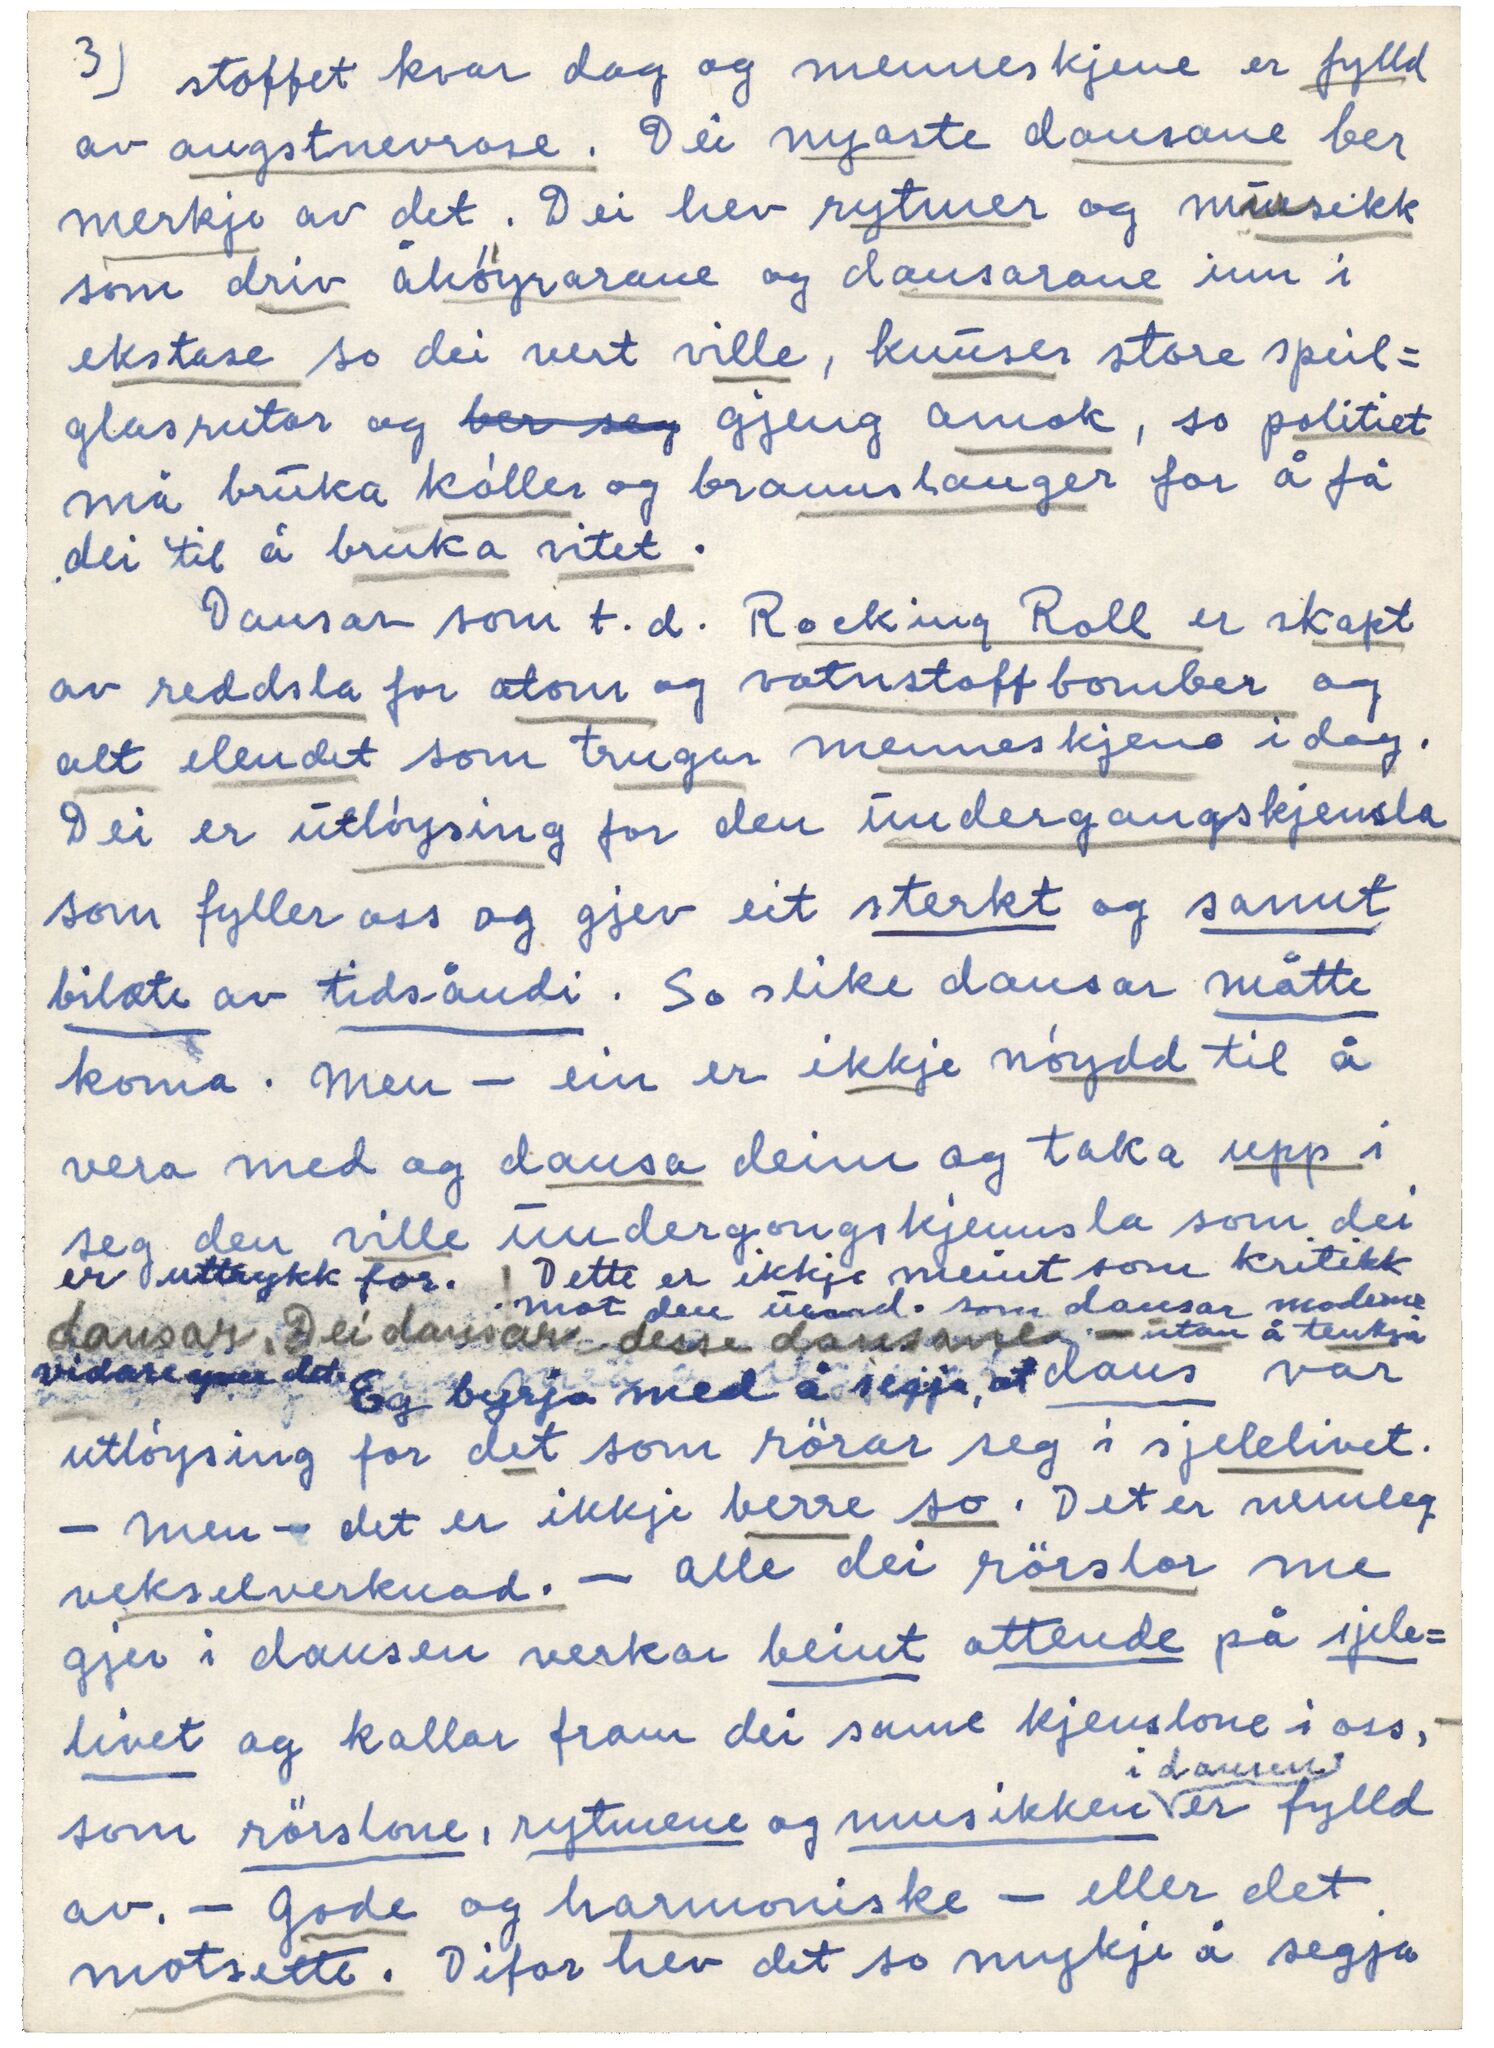 3) stoffet kvar dag og menneskjene er fylld
av angstnevrose. Dei nyaste dansane ber
merkje av det. Dei hev rytmer og musikk
som driv åhøyrarane og dansarane inn i
ekstase so dei vert ville, knuser store speil=
glasrutor og ber seg gjeng amok, so politiet
må bruka kóller og brannslanger for å få
dei til å bruka vitet.
Dansar som t.d. Rocking Roll er skapt
av reddsla for atom og vatnstoffbomber og
alt elendet som trugar menneskjene i dag.
Dei er utlóysing for den undergangskjensla
som fyller oss og gjev eit sterkt og sannt
bilæte av tidsåndi. So slike dansar måtte
koma. Men – ein er ikkje nóydd til å
vera med og dansa deim og taka upp i
seg den ville undergongskjennsla som dei
er uttrykk for. Dette er ikkje meint som kritikk
mot den som dansar moderne
dansar. Dei dansar desse dansane – utan å tenkja
vidare yver det. Eg byrja med å segja, at dans var
utlóysing for det som rörar seg i sjelelivet.
– Men – det er ikkje berre so. Det er nemleg
vekselverknad. – Alle dei rörslor me
gjer i dansen verkar beint attende på sjele=
livet og kallar fram dei same kjenslone i oss, –
i dansen
som rörslone, rytmene og musikken er fylld
av. – Gode og harmoniske – eller det
motsette. Difor hev det so mykje å segja